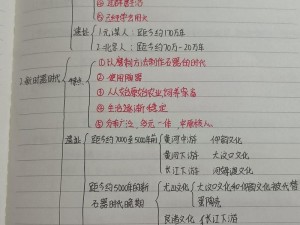 遗址
1.元谋人：距今约170万年
2.北京人：距今约70万-20万年
2.新时器时代
特点
①以磨制方法制作石器的时代
②使用陶器
③人们从事原始农业、饲养家畜
④生活逐渐稳定
⑤分布广泛，多元一体，中原核心。
遗址
距今约7000年至5000年前
黄河中游 仰韶文化
黄河下游 大汶口文化
长江下游 河姆渡文化
距今约5000年的新石器时代晚期
龙山文化
大汶口文化和仰韶文化被代替
黑陶
良渚文化 长江下游